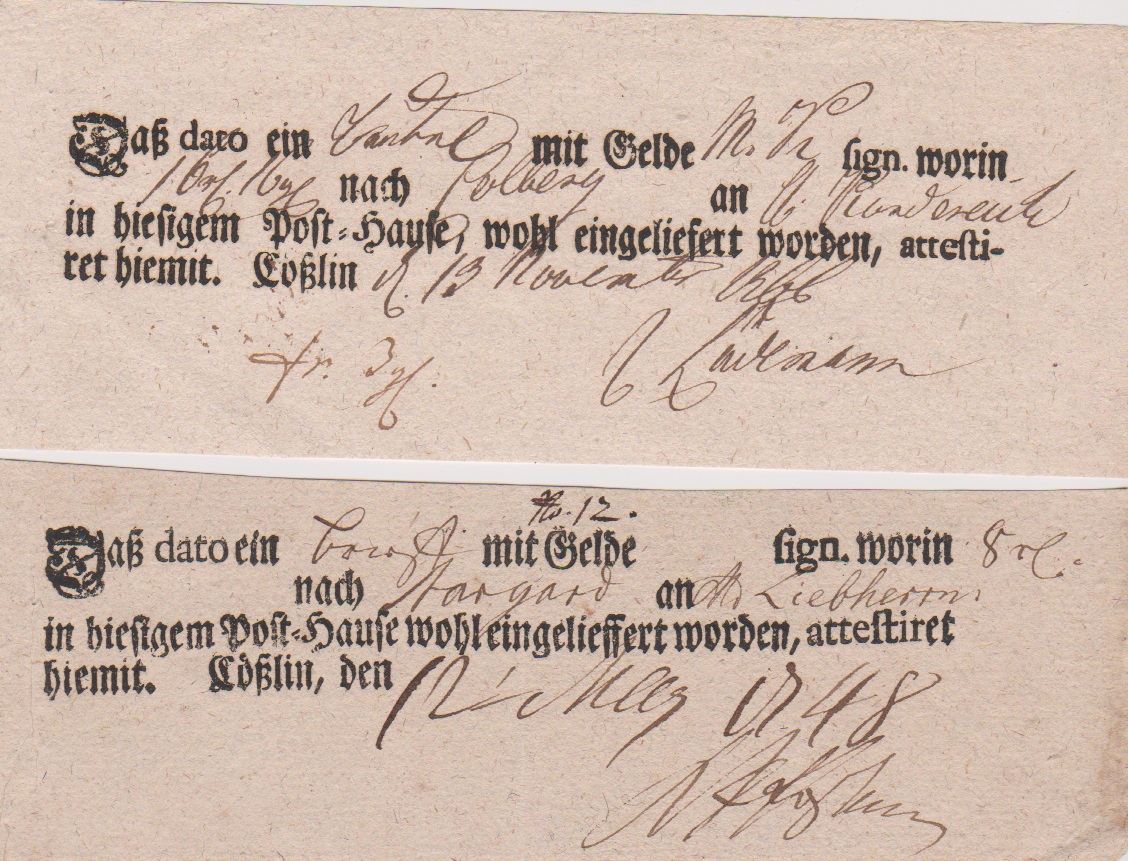 Daß dato ein Beutel mit Gelde M. K. sign. worin
nach Colberg an
in hiesigem Post-Hause, wohl eingeliefert worden, attesti-
ret hiemit. Cößlin d. 13 Novembr
fr. 3 gl.
Lademann
No. 12.
Daß dato ein brieff mit Gelde sign. worin 8 rl.
nach Stargard an Liebherrn
in hiesigem Post-Hause wohl eingelieffert worden, attestiret
hiemit. Cößlin, den 12 May 1748